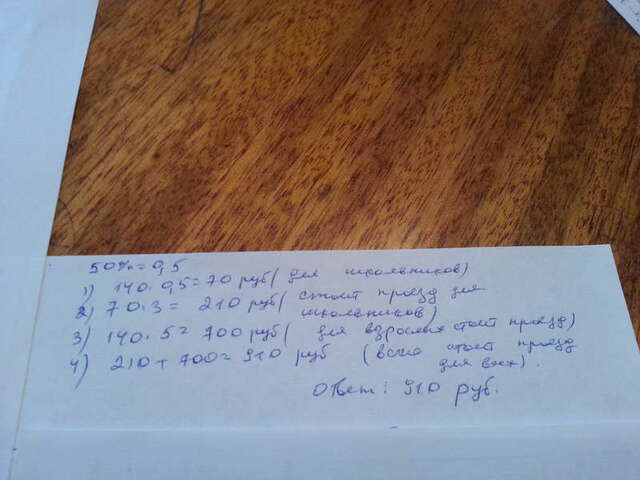 50% = 0,5
1) 140 . 0,5 = 70 руб ( для школьников)
2) 70 . 3 = 210 руб ( стоит проезд для
школьников)
3) 140 . 5 = 700 руб ( для взрослых стоит проезд)
4) 210 + 700 = 910 руб (всего стоит проезд
для всех).
Ответ : 910 руб.